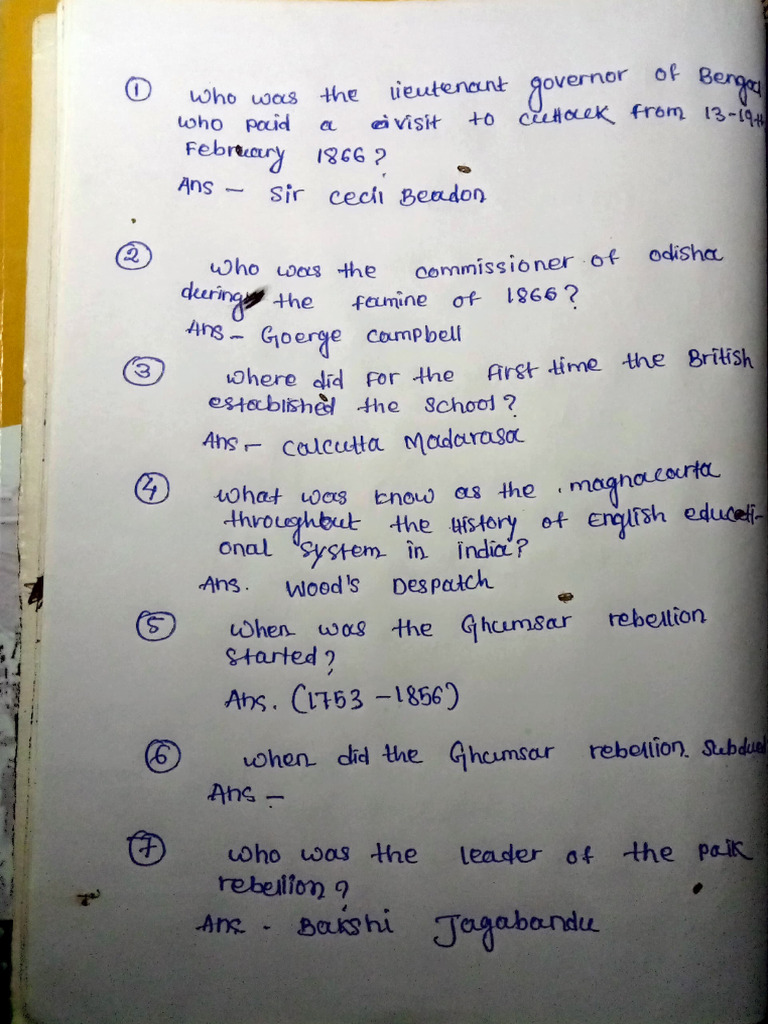 ① Who was the lieutenant governor of Bengal
who paid a visit to cuttack from 13-19th
February 1866?
Ans - Sir Cecil Beadon
② Who was the commissioner of odisha
during the famine of 1866?
Ans - Goerge Campbell
③ Where did for the first time the British
established the school?
Ans - Calcutta Madarasa
④ What was know as the magnacarta
throughout the History of English educati-
onal system in india?
Ans. Wood's Despatch
⑤ When was the Ghumsar rebellion
started?
Ans. (1753 - 1856)
⑥ when did the Ghumsar rebellion subdued
Ans -
⑦ who was the leader of the paik
rebellion?
Ans - Bakshi Jagabandu